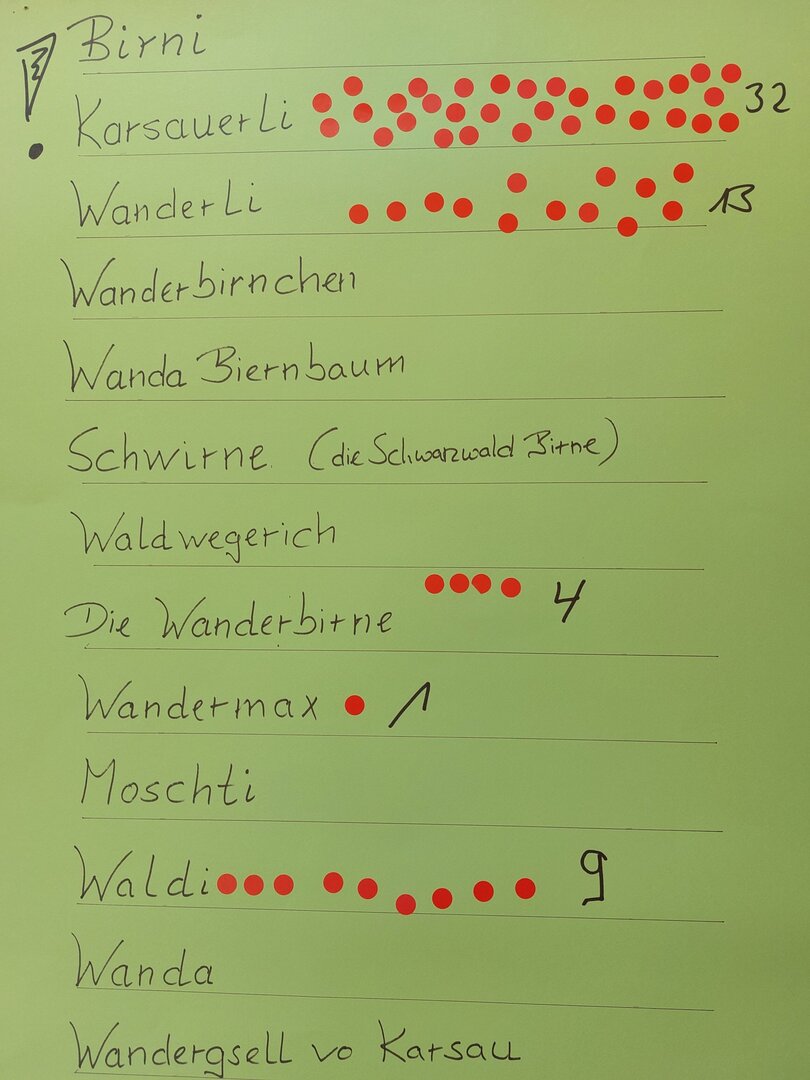 Birni
!
KarsauerLi 32
WanderLi 13
Wanderbirnchen
Wanda Biernbaum
Schwirne (die Schwarzwald Birne)
Waldwegerich
Die Wanderbirne 4
Wandermax 1
Moschti
Waldi 9
Wanda
Wandergsell vo Karsau